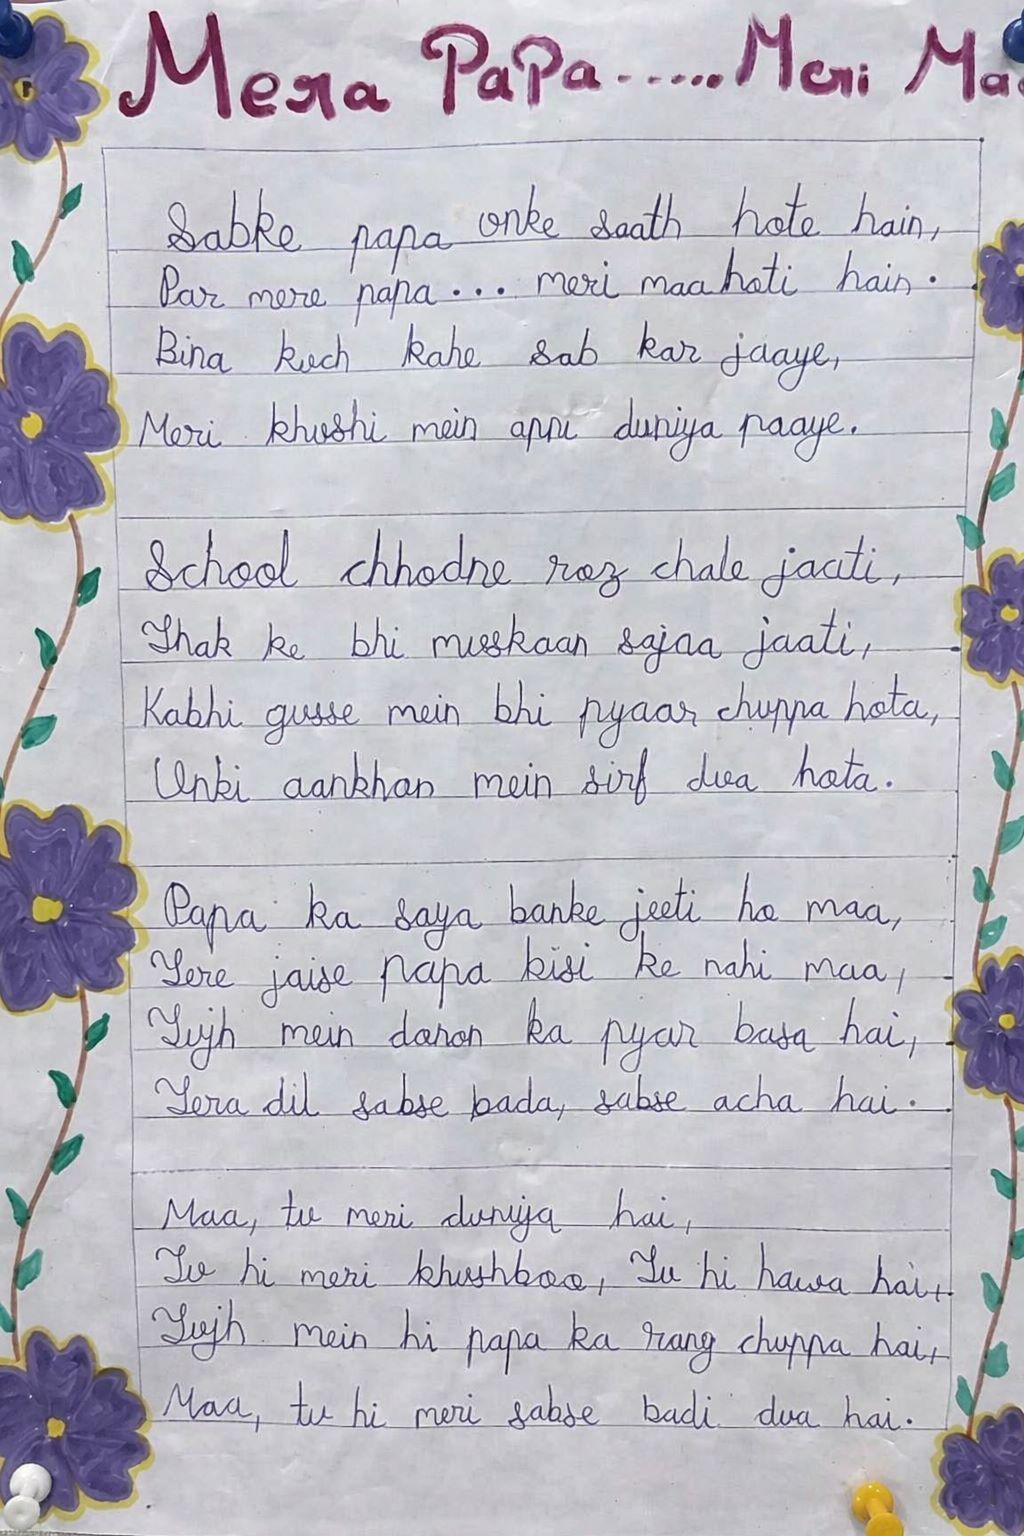 Mera Papa.....Meri Maa
Sabke papa unke saath hote hain,
Par mere papa... meri maa hoti hain.
Bina kuch kahe sab kar jaaye,
Meri khushi mein apni duniya paaye.
School chhodne roz chale jaati,
Thak ke bhi muskaan sajaa jaati,
Kabhi gusse mein bhi pyaar chuppa hota,
Unki aankhon mein sirf dua hota.
Papa ka saya banke jeeti ho maa,
Tere jaise papa kisi ke nahi maa,
Tujh mein donon ka pyar basa hai,
Tera dil sabse bada, sabse acha hai.
Maa, tu meri duniya hai,
Tu hi meri khushboo, Tu hi hawa hai,
Tujh mein hi papa ka rang chuppa hai,
Maa, tu hi meri sabse badi dua hai.